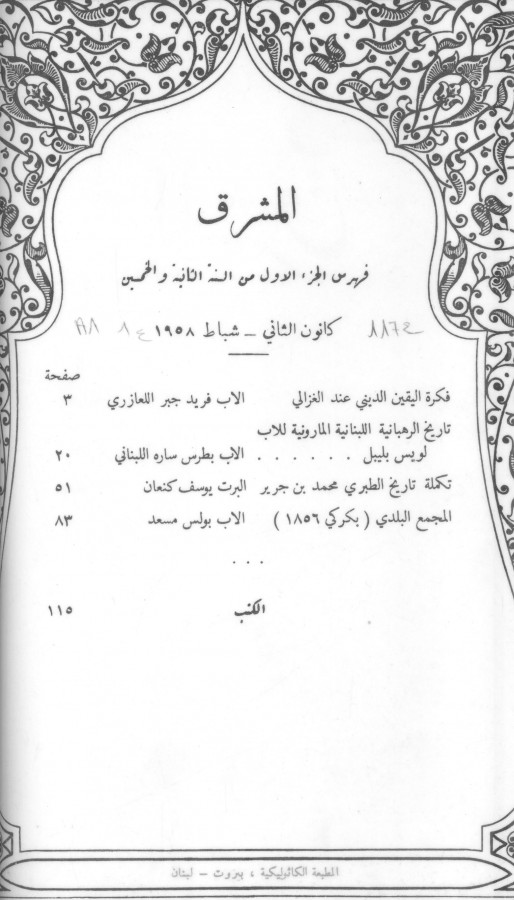 المشرق
فهرس الجزء الاول من السنة الثانية والخمسين
كانون الثاني – شباط ١٩٥٨
صفحة
فكرة اليقين الديني عند الغزالي الاب فريد جبر اللعازري ٣
تاريخ الرهبانية اللبنانية المارونية للاب
لويس بليبل . . . . . . الاب بطرس ساره اللبناني ٢٠
تكملة تاريخ الطبري محمد بن جرير البرت يوسف كنعان ٥١
المجمع البلدي ( بكركي ١٨٥٦ ) الاب بولس مسعد ٨٣
. . .
الكتب ١١٥
المطبعة الكاثوليكية ، بيروت – لبنان